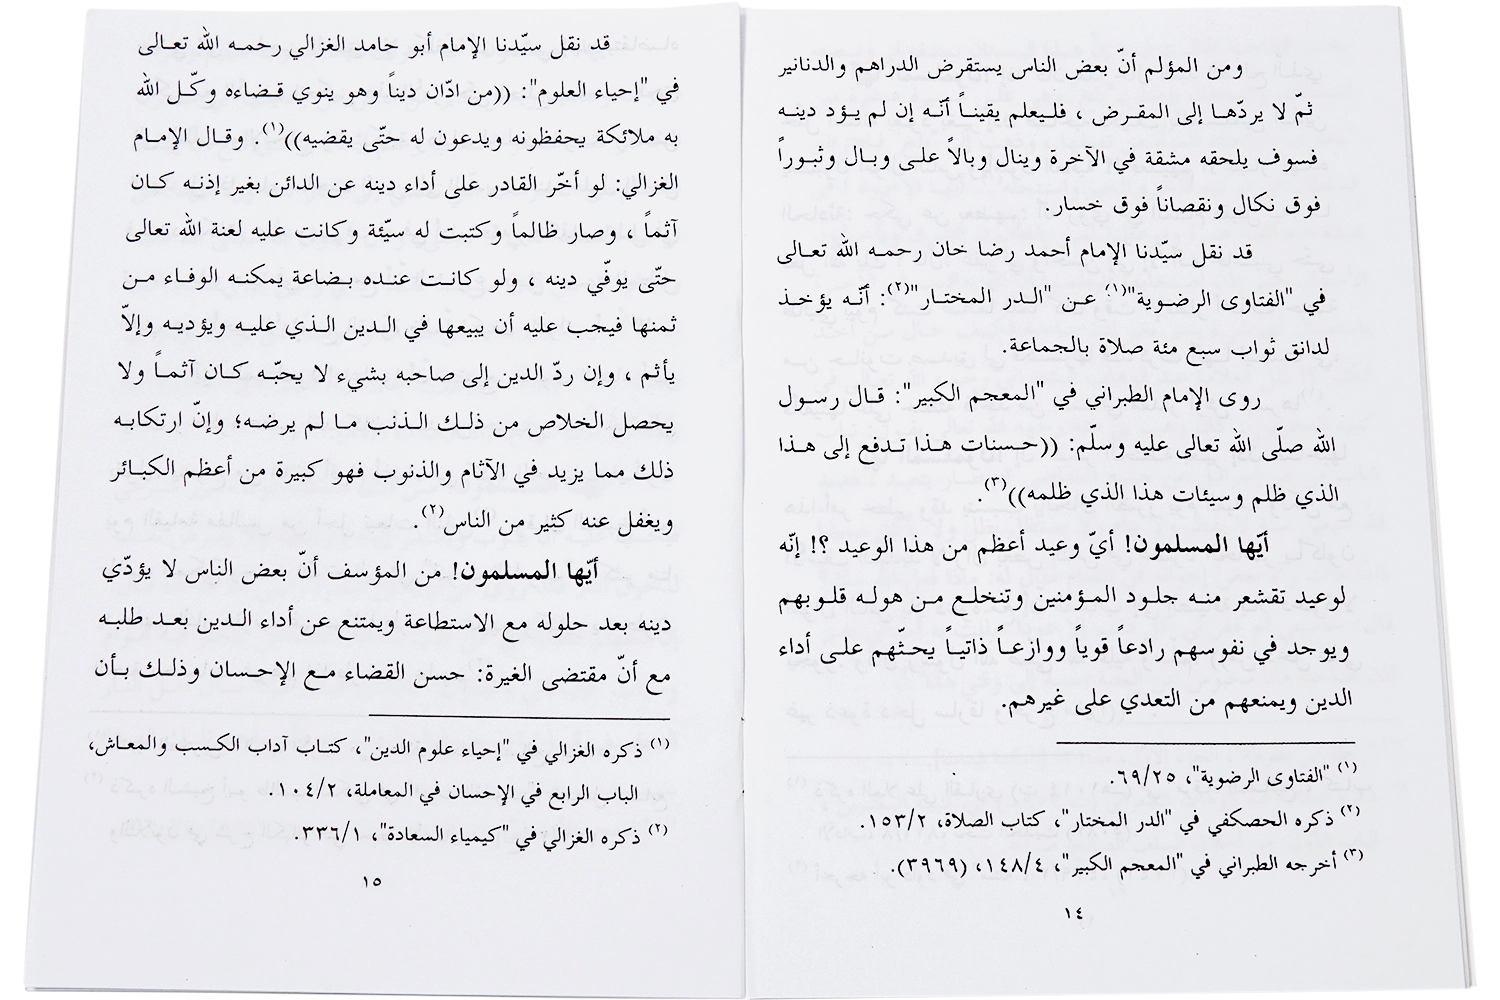 ومن المؤلم أنّ بعض الناس يستقرض الدراهم والدنانير
ثمّ لا يردّها إلى المقرض ، فليعلم يقيناً أنّه إن لم يؤد دينه
فسوف يلحقه مشقة في الآخرة وينال وبالاً على وبال وثبوراً
فوق نكال ونقصاناً فوق خسار.
قد نقل سيّدنا الإمام أحمد رضا خان رحمه الله تعالى
في "الفتاوى الرضوية"(١) عن "الدر المختار"(٢): أنّه يؤخذ
لدانق ثواب سبع مئة صلاة بالجماعة.
روى الإمام الطبراني في "المعجم الكبير": قال رسول
الله صلّى الله تعالى عليه وسلّم: ((حسنات هذا تدفع إلى هذا
الذي ظلم وسيئات هذا الذي ظلمه))(٣).
أيّها المسلمون! أيّ وعيد أعظم من هذا الوعيد ؟! إنّه
لوعيد تقشعر منه جلود المؤمنين وتنخلع من هوله قلوبهم
ويوجد في نفوسهم رادعاً قوياً ووازعاً ذاتياً يحثّهم على أداء
الدين ويمنعهم من التعدي على غيرهم.
(١) "الفتاوى الرضوية"، ٦٩/٢٥.
(٢) ذكره الحصكفي في "الدر المختار"، كتاب الصلاة، ١٥٣/٢.
(٣) أخرجه الطبراني في "المعجم الكبير"، ١٤٨/٤، (٣٩٦٩).
١٤
قد نقل سيّدنا الإمام أبو حامد الغزالي رحمه الله تعالى
في "إحياء العلوم": ((من ادّان ديناً وهو ينوي قضاءه وكّل الله
به ملائكة يحفظونه ويدعون له حتّى يقضيه))(١). وقال الإمام
الغزالي: لو أخّر القادر على أداء دينه عن الدائن بغير إذنه كان
آثماً ، وصار ظالماً وكتبت له سيّئة وكانت عليه لعنة الله تعالى
حتّى يوفّي دينه ، ولو كانت عنده بضاعة يمكنه الوفاء من
ثمنها فيجب عليه أن يبيعها في الدين الذي عليه ويؤديه وإلاّ
يأثم ، وإن ردّ الدين إلى صاحبه بشيء لا يحبّه كان آثماً ولا
يحصل الخلاص من ذلك الذنب ما لم يرضه؛ وإنّ ارتكابه
ذلك مما يزيد في الآثام والذنوب فهو كبيرة من أعظم الكبائر
ويغفل عنه كثير من الناس(٢).
أيّها المسلمون! من المؤسف أنّ بعض الناس لا يؤدّي
دينه بعد حلوله مع الاستطاعة ويمتنع عن أداء الدين بعد طلبه
مع أنّ مقتضى الغيرة: حسن القضاء مع الإحسان وذلك بأن
(١) ذكره الغزالي في "إحياء علوم الدين"، كتاب آداب الكسب والمعاش،
الباب الرابع في الإحسان في المعاملة، ١٠٤/٢.
(٢) ذكره الغزالي في "كيمياء السعادة"، ٣٣٦/١.
١٥